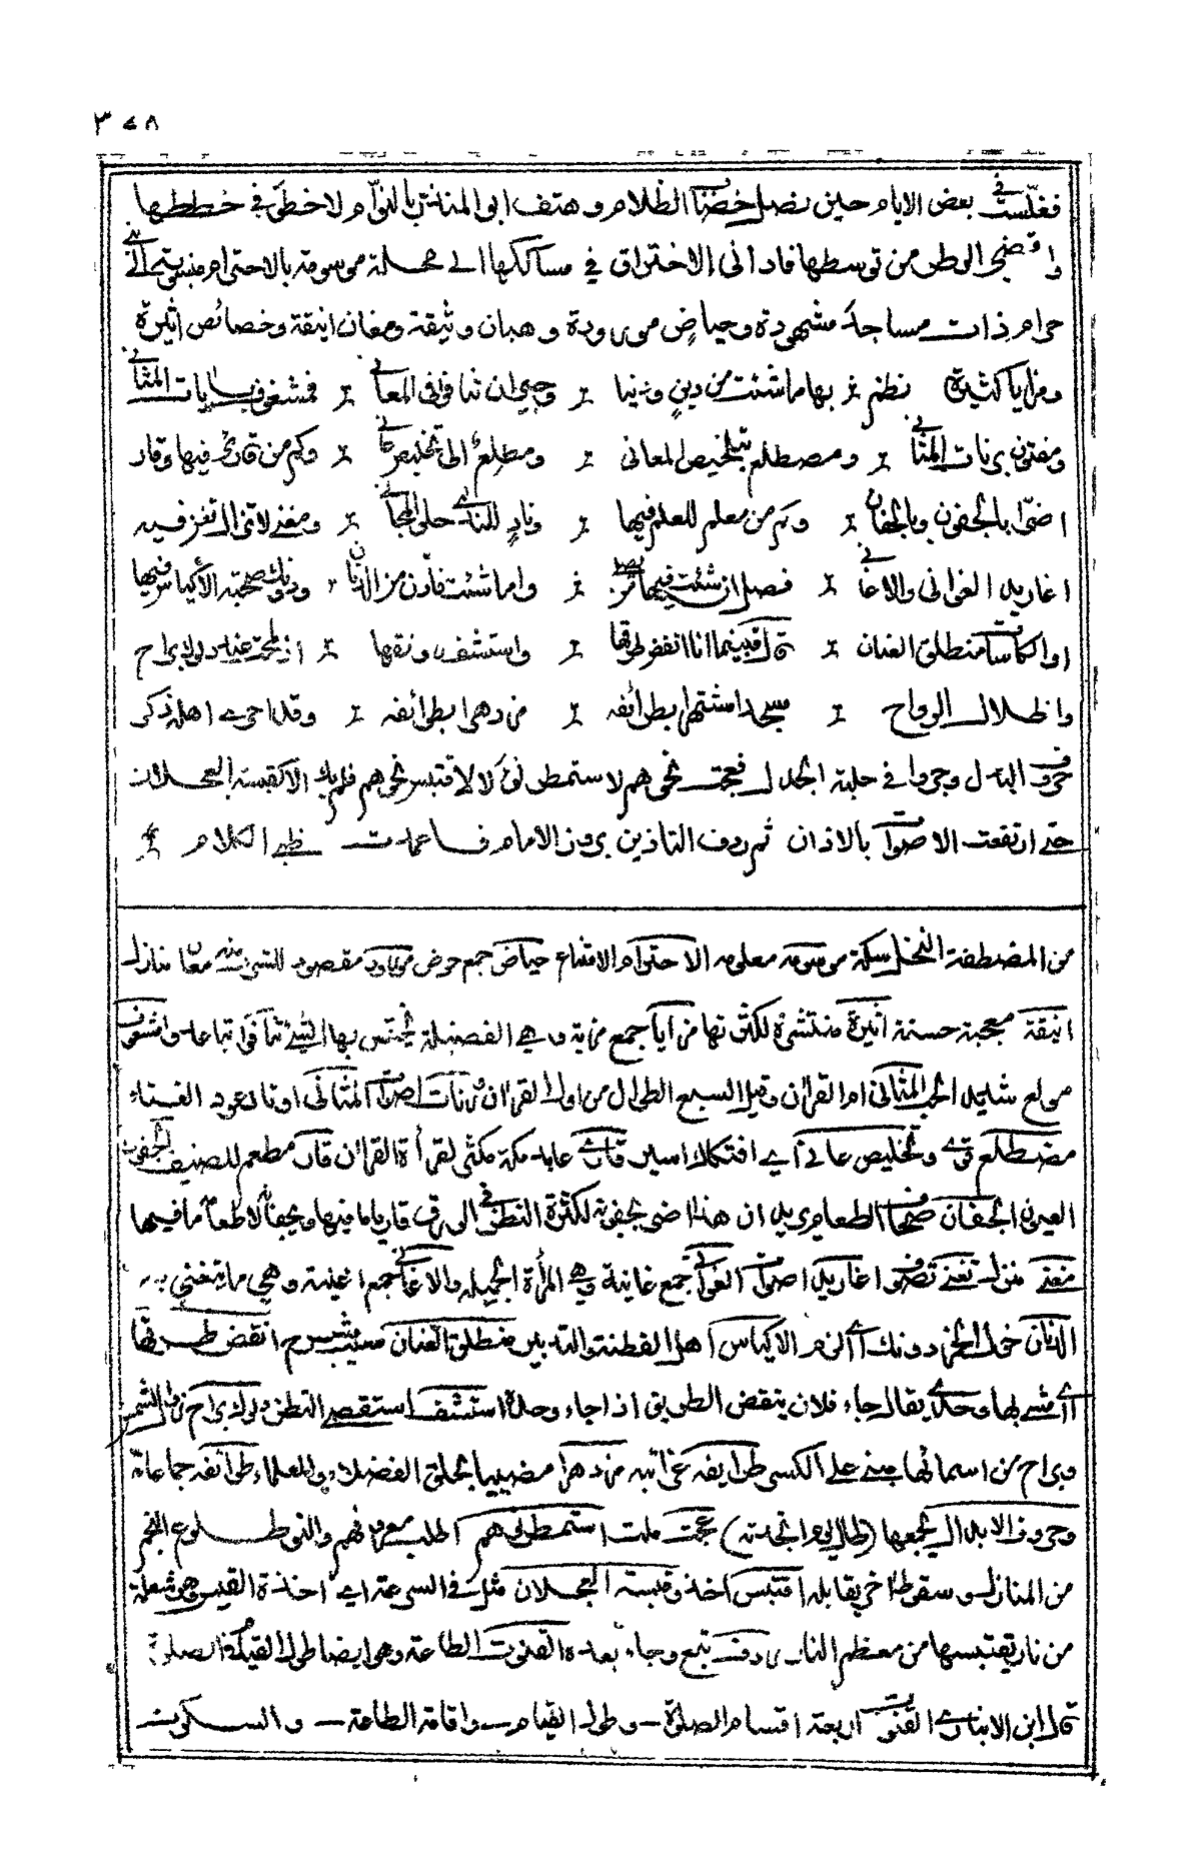 ٣٧٨
فغلّست في بعض الايام حين نصل خضاب الظلام وهتف ابو المنذر بالنوّام لاخطو في خططها
واقضي الوطر من توسطها فاداني الاختراق في مسالكها الى محلة موسومة بالاحترام منسوبة الى بني
حرام ذات مساجد مشهودة وحياض مورودة ومبان وثيقة ومغان انيقة وخصائص اثيرة
ومزايا كثيرة نظم بها ماشئت من دين ودنيا وجيران تنافوا في المعاني فمشغوف بآيات المثاني
ومفتون برنات المثاني ومضطلع بتلخيص المعاني ومطلع الى تخليص عاني وكم من قارئ فيها وقار
اضرّا بالجفون وبالجفان وكم من معلم للعلم فيها وناد للندى حلو المجاني ومغنى لا تزال تغن فيه
اغاريد الغواني والاغاني فصل ان شئت فيها من يصلي واما شئت فادن من الدنان ودونك صحبة الاكياس فيها
او الكاسات منطلق العنان قال فبينما انا انفض طرقها واستشف رونقها اذ لمحت عند دلوك براح
واظلال الرواح مسجدا مشتهرا بطرائفه مزدهرا بطوائفه وقد اجرى اهله ذكر
حروف البدل وجروا في حلبة الجدل فعجت نحوهم لاستمطر نوءهم لا لاقتبس نحوهم فلم يك الا كقبسة العجلان
حتى ارتفعت الاصوات بالاذان ثم ردف التاذين بروز الامام فاغمدت ظبي الكلام
من المضطفة النخل سكة موسومة معلومه الاحترام الامتناع حياض جمع حوض مورود مقصود للشرب منه مغان منازل
انيقة معجبة حسنة اثيرة منتشرة لكثرتها مزايا جمع مزية وهي الفضيلة يختص بها الشيء تنافوا تباعدوا مشغوف
مولع شديد الحب المثاني ام القران وقيل السبع الطوال من اول القران رنات اصوات المثاني اوتار عود الغناء
مضطلع قوي وتخليص عاني اي افتكاك اسير قارئ عابد مكة مكثر لقرأة القران قار مطعم للضيف الجفون
العيون الجفان صحاف الطعام يريد ان هذا اضر بجفونه لكثرة النظر في الورق قاريا ما فيها وبجفانه لاطعام ما فيها
مغنى منزل تغن تصوت اغاريد اصوات الغواني جمع غانية وهي المرأة الجميله والاغاني جمع اغنية وهي ما يتغنى به
الدنان خوابي الخمر دونك اي الزم الاكياس اهل الفطنة والتدبير منطلق العنان مسيب مسرح انفض طرقها
اي امشي بها وحدي يقال جاء فلان ينفض الطريق اذا جاء وحده استشف استقصي النظر دلوك براح زوال الشمس
وبراح من اسمائها مبني على الكسر طرايفه غرائبه مزدهرا مضيئا بحلق الفضلاء والعلماء طوائفه جماعاته
وحروف الابدال يجمعها (طال يوم انجدته) عجت ملت استمطر نوءهم اطلب معروفهم والنوء طلوع النجم
من المنازل وسقوط اخر يقابله اقتبس اخذ وقبسة العجلان مثل في السرعة اي اخذة القبس وهو شعلة
من نار يقتبسها من معظم النار ردف تبع وجاء بعده القنوت الطاعة وهو ايضا طول القيام في الصلوة
قال ابن الانباري القنوت اربعة اقسام الصلوة – وطول القيام – واقامة الطاعة – والسكوت